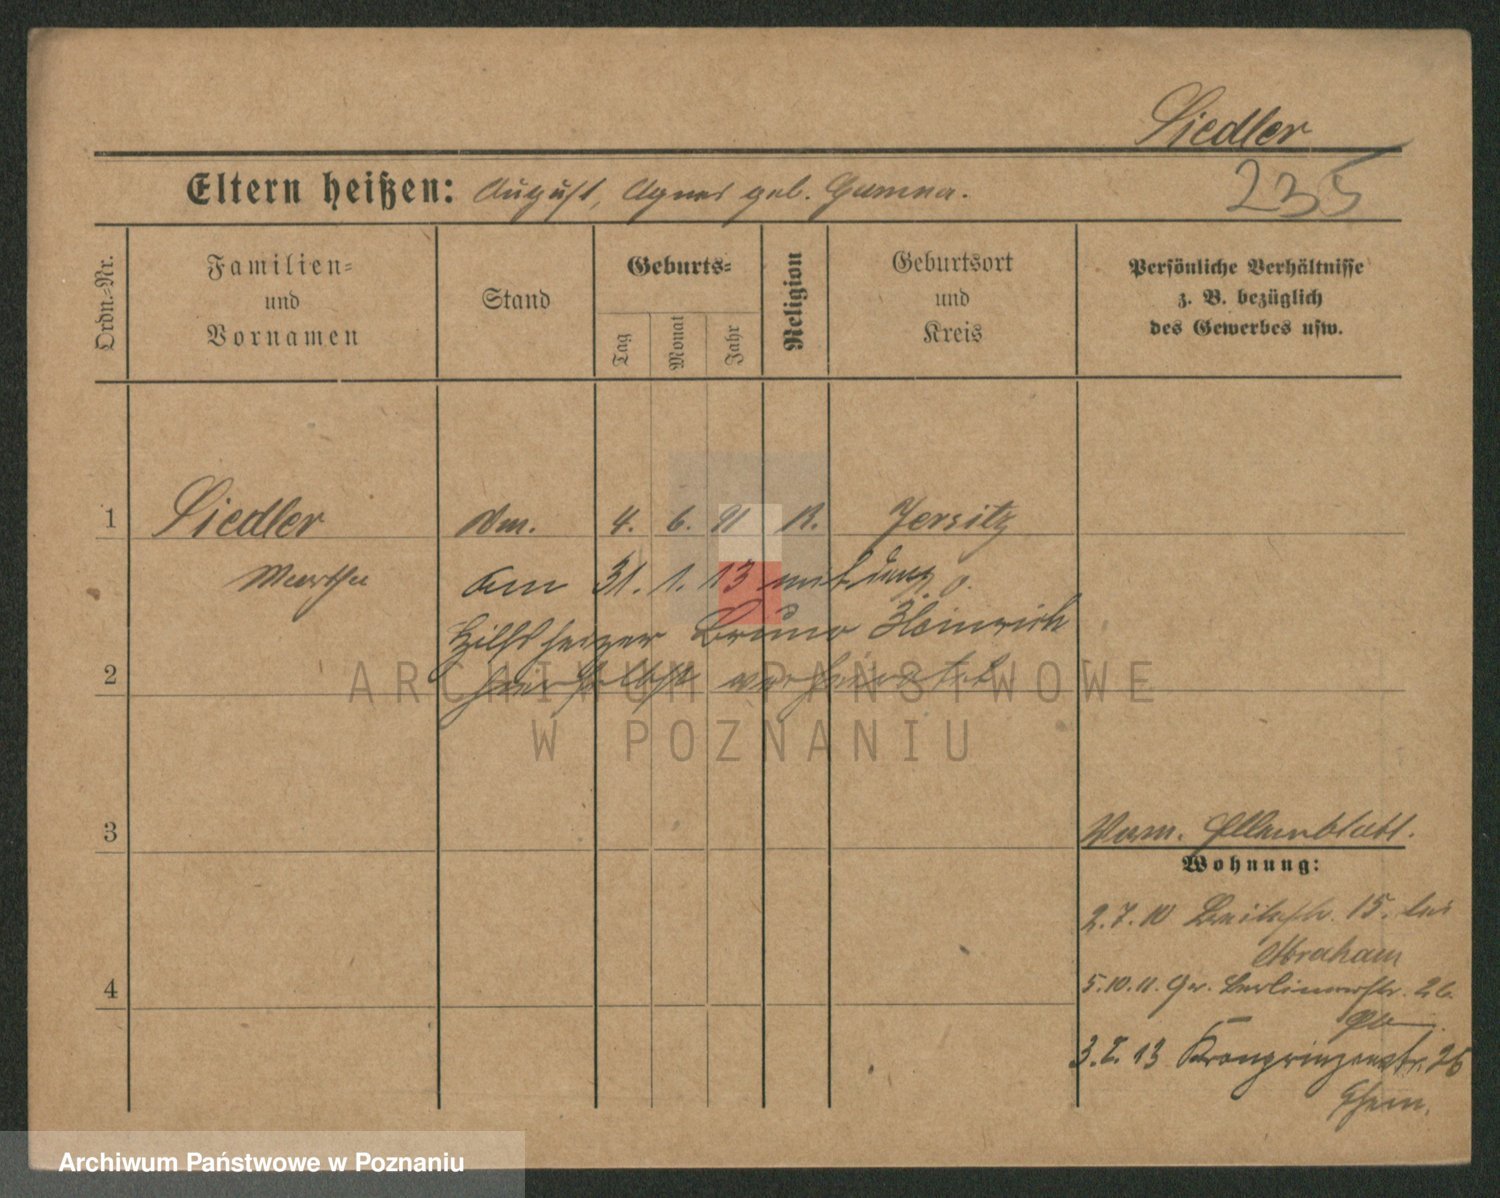 Siedler
Eltern heißen: August, Agnes geb.
235
Ordn.-Nr.
Familien-
und
Vornamen
Stand
Geburts-
Tag
Monat
Jahr
Religion
Geburtsort
und
Kreis
Persönliche Verhältnisse
z. B. bezüglich
des Gewerbes usw.
1 Siedler 4. 6. 91 K. Jersitz
Martha am 31. 1. 13 mit dem
Hilfsheizer Bruno Heinrich
2 hierselbst verheiratet
ARCHIWUM PAŃSTWOWE
W POZNANIU
3
Elternblatt.
Wohnung:
2.7.10 15. bei
Abraham
4
5.10.11. Gr. Berlinerstr. 26.
3.2.13 Kronprinzenstr. 26
Ehem.
Archiwum Państwowe w Poznaniu